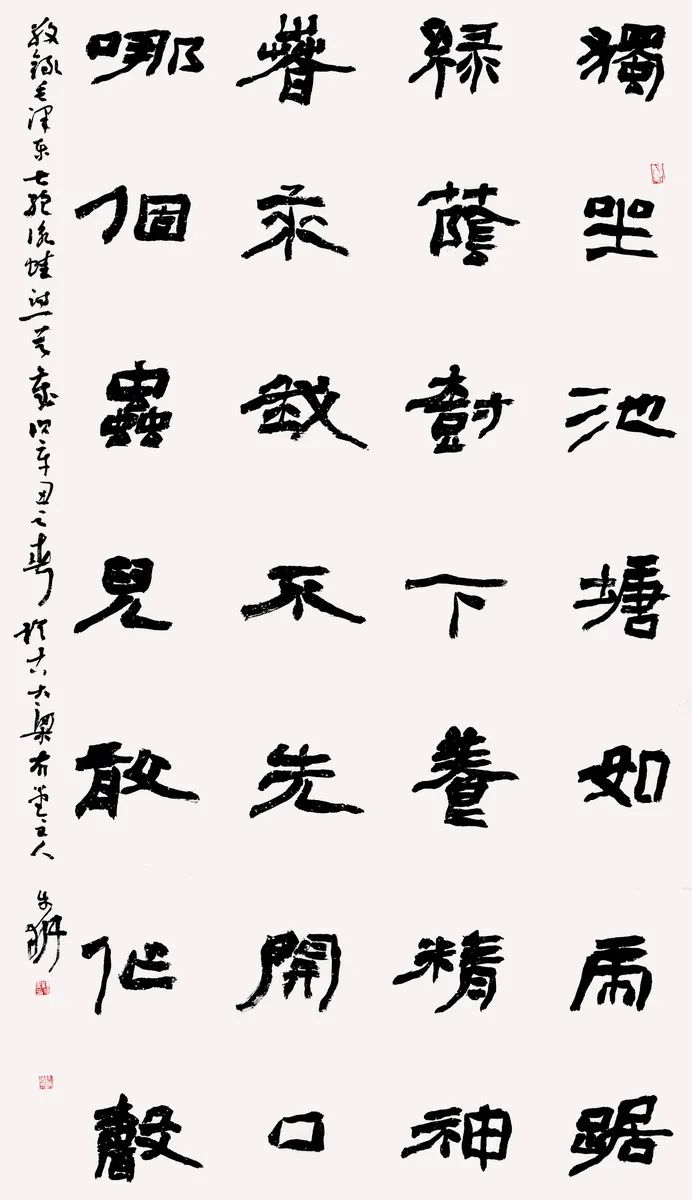 獨坐池塘如虎踞
綠蔭樹下養精神
春来我不先開口
哪個蟲兒敢作聲
敬錄毛澤东七絕詠蛙詩一首歲次辛丑之春於古大梁